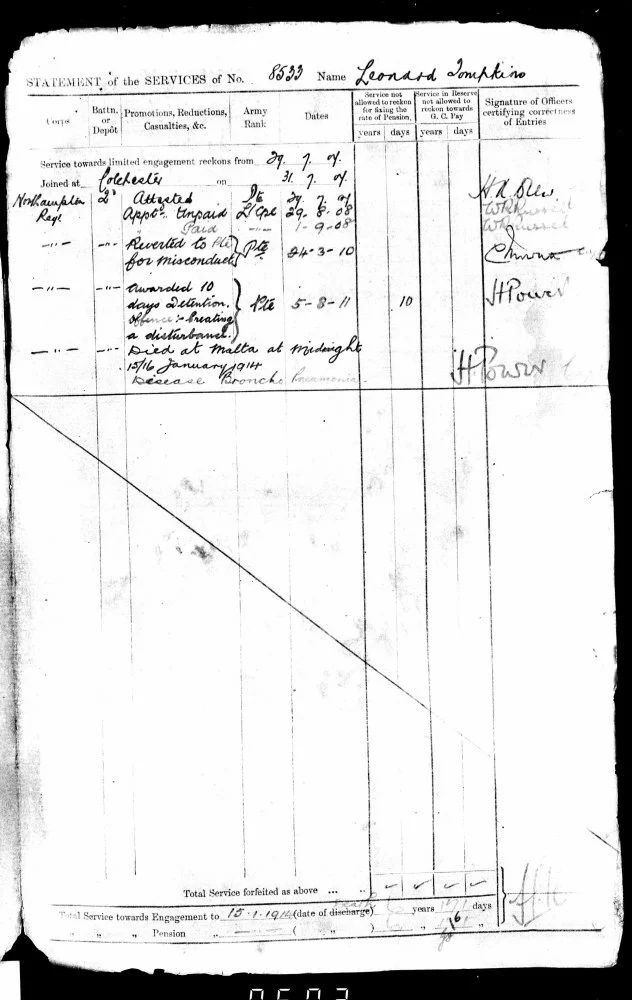 STATEMENT of the SERVICES of No. 8533 Name Leonard Tompkins
Corps
Battn. or Depôt
Promotions, Reductions, Casualties, &c.
Army Rank
Dates
Service not allowed to reckon for fixing the rate of Pension,
years days
Service in Reserve not allowed to reckon towards G. C. Pay
years days
Signature of Officers certifying correctness of Entries
Service towards limited engagement reckons from 29. 7. 07.
Joined at Colchester on 31. 7. 07.
Northampton Regt 2d Attested Pte 29. 7. 07
Appt. Unpaid L/Cpl 29. 8. 08
" Paid 1-9-08
-"- -"- Reverted to Pte for misconduct Pte 24-3-10
-"- -"- Awarded 10
days Detention. Pte 5-8-11 10 H Power
Offence:- Creating
a disturbance.
-"- -"- Died at Malta at Midnight
15/16 January 1914 H. Power
Disease Broncho Pneumonia.
Total Service forfeited as above ... ..
Total Service towards Engagement to 15.1.1914 (date of discharge) death 6 years 171 days
" " " Pension " ( " ) "
0503